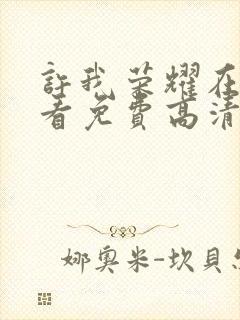 許我荣耀在
看免費高清
娜奧米-坎貝